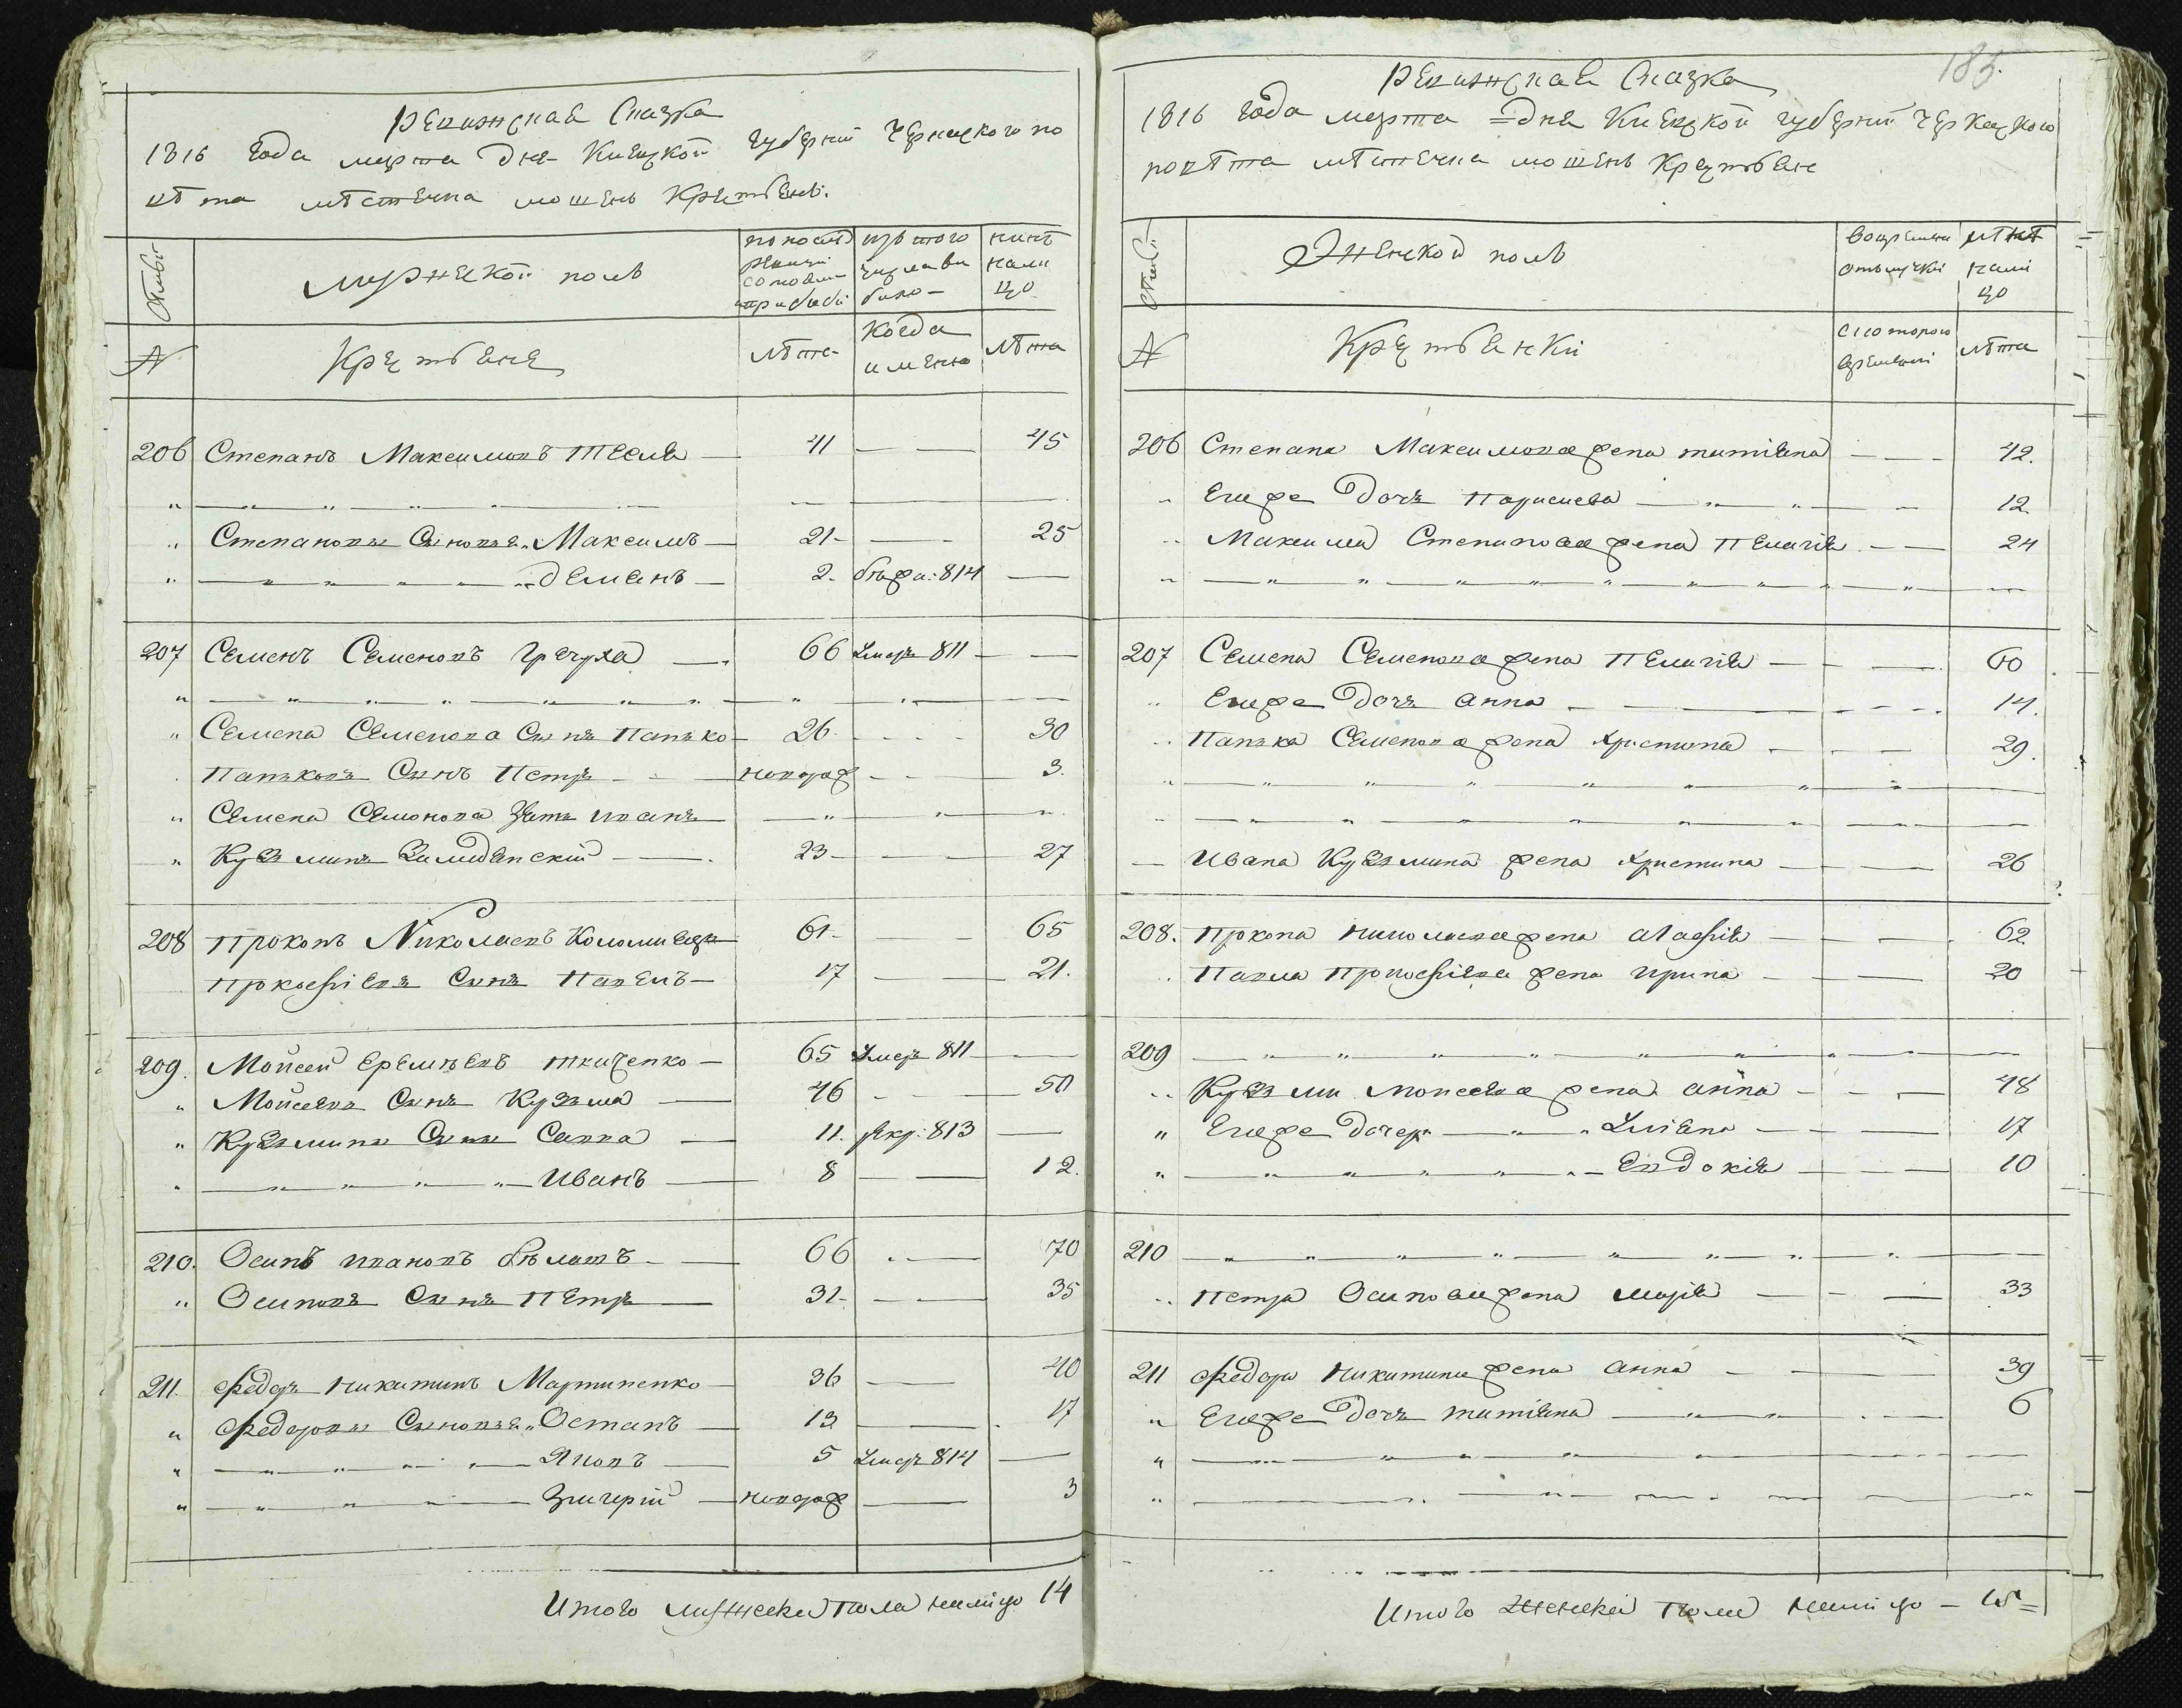 Ревижская Сказка
1816 года марта дня Киевской губернии Черкаского по
вѣта мѣстечка мошенъ Крестьянъ.
Мужеской полъ
Крестьяне
лѣта
когда
именно
лѣта
206 Степанъ Максимовъ Тесля 41 45
Степановы Сыновья Максимъ 21 25
Демянъ 2 бѣжа: 814
207 Семенъ Семеновъ Гречуха 66 Умеръ 811
Семена Семенова Сынъ Панько 26 30
Паньковъ Сынъ Петръ новорож 3
Семена Семенова Зять Иванъ
Кузьминъ 23 27
208 Прокопъ Николаевъ Коломиецъ 61 65
Прокофіевъ Сынъ Павелъ 17 21
209 Мойсей Еремѣевъ Ткаченко 65 Умеръ 811
Мойсеевъ Сынъ Кузьма 46 50
Кузьминъ Сынъ Савва 11 рекр: 813
Иванъ 8 12
210 Осипъ Ивановъ 66 70
Осиповъ Сынъ Петръ 31 35
211 Федоръ Никитинъ Мартиненко 36 40
Федоровы Сыновья Остапъ 13 17
Яковъ 5 Умеръ 814
Григорій новорож 3
Итого мужеска пола налицо 14
185
Ревижская Сказка
1816 года марта дня Киевской губернии Черкаского
повѣта мѣстечка мошенъ Крестьяне
Женской полъ
Крестьянки
лѣта
206 Степана Максимова жена Татіяна 42
Ея же дочь Параскева 12
Максима Степанова жена Пелагія 24
207 Семена Семенова жена Пелагія 60
Ея же дочь Анна 14
Панька Семенова жена Христина 29
Ивана Кузьмина жена Христина 26
208 Прокопа Николаева жена Агафія 62
Павла Прокофіева жена Ирина 20
209
Кузьмы Моисеева жена Анна 48
Ея же дочери Уліяна 17
Евдокія 10
210
Петра Осипова жена Марія 33
211 Федора Никитина жена Анна 39
Ея же дочь Татіяна 6
Итого женска пола налицо 15